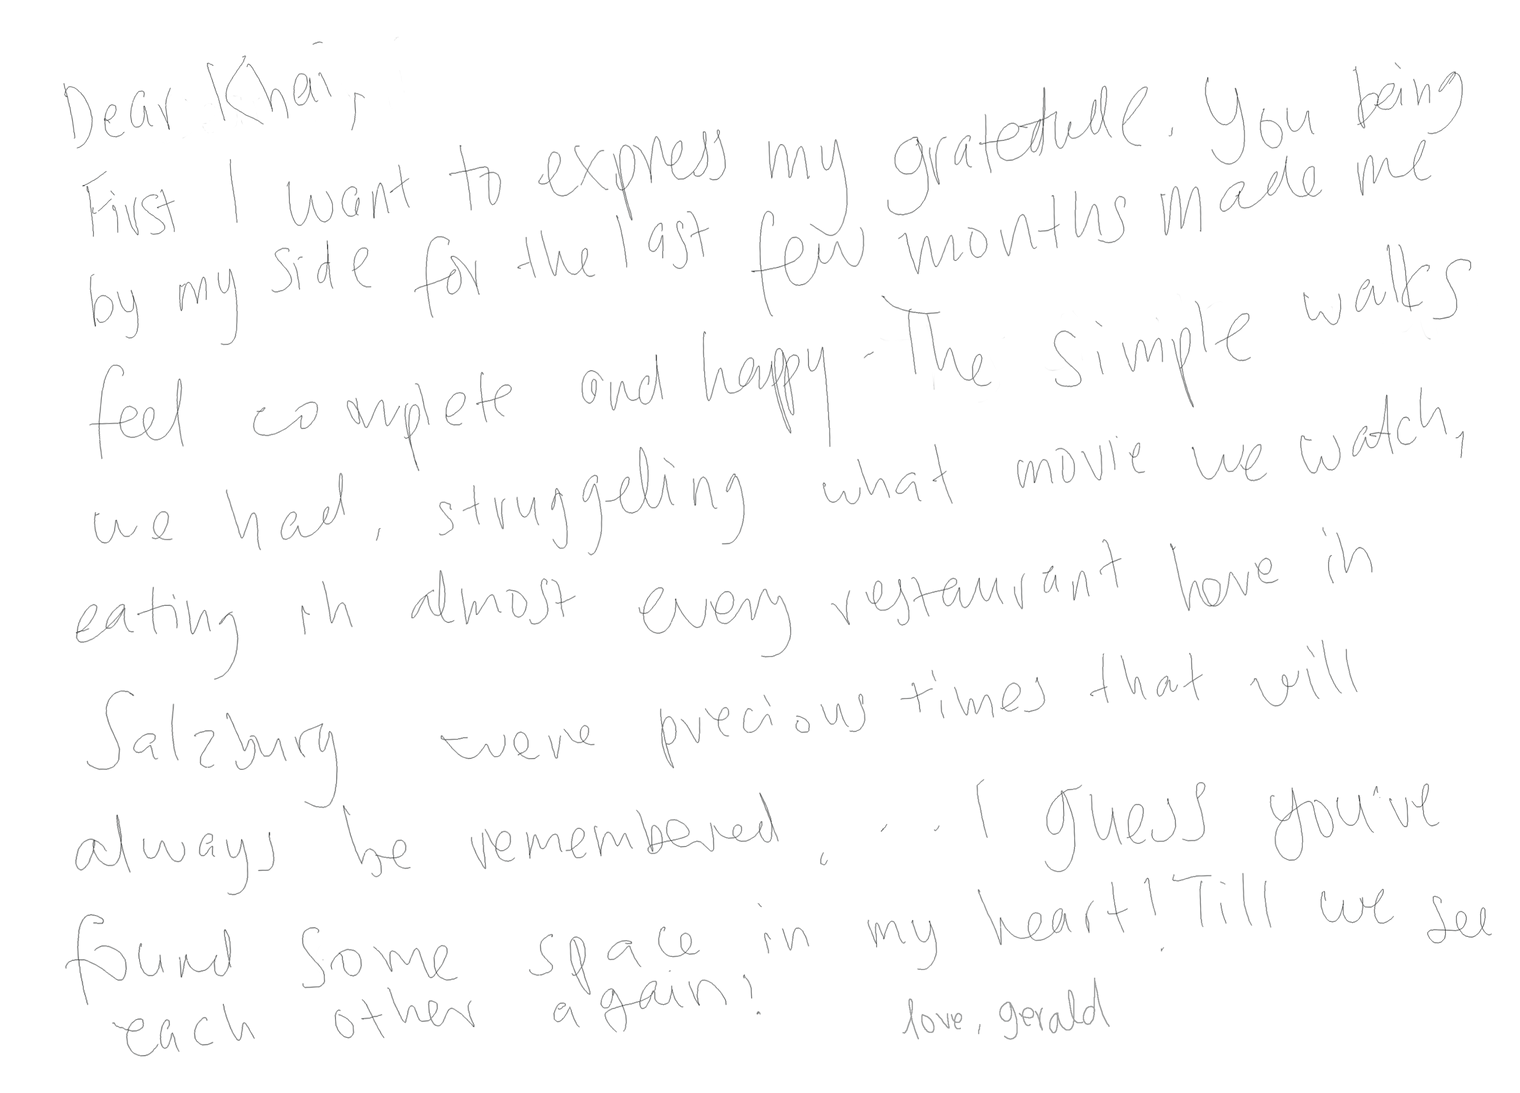 Dear Khai,
First I want to express my gratedude. You being
by my side for the last few months made me
feel complete and happy. The simple walks
we had, struggeling what movie we watch,
eating in almost every restaurant here in
Salzburg were precious times that will
always be remembered. ... I guess you've
found some space in my heart! Till we see
each other again!
love, gerald